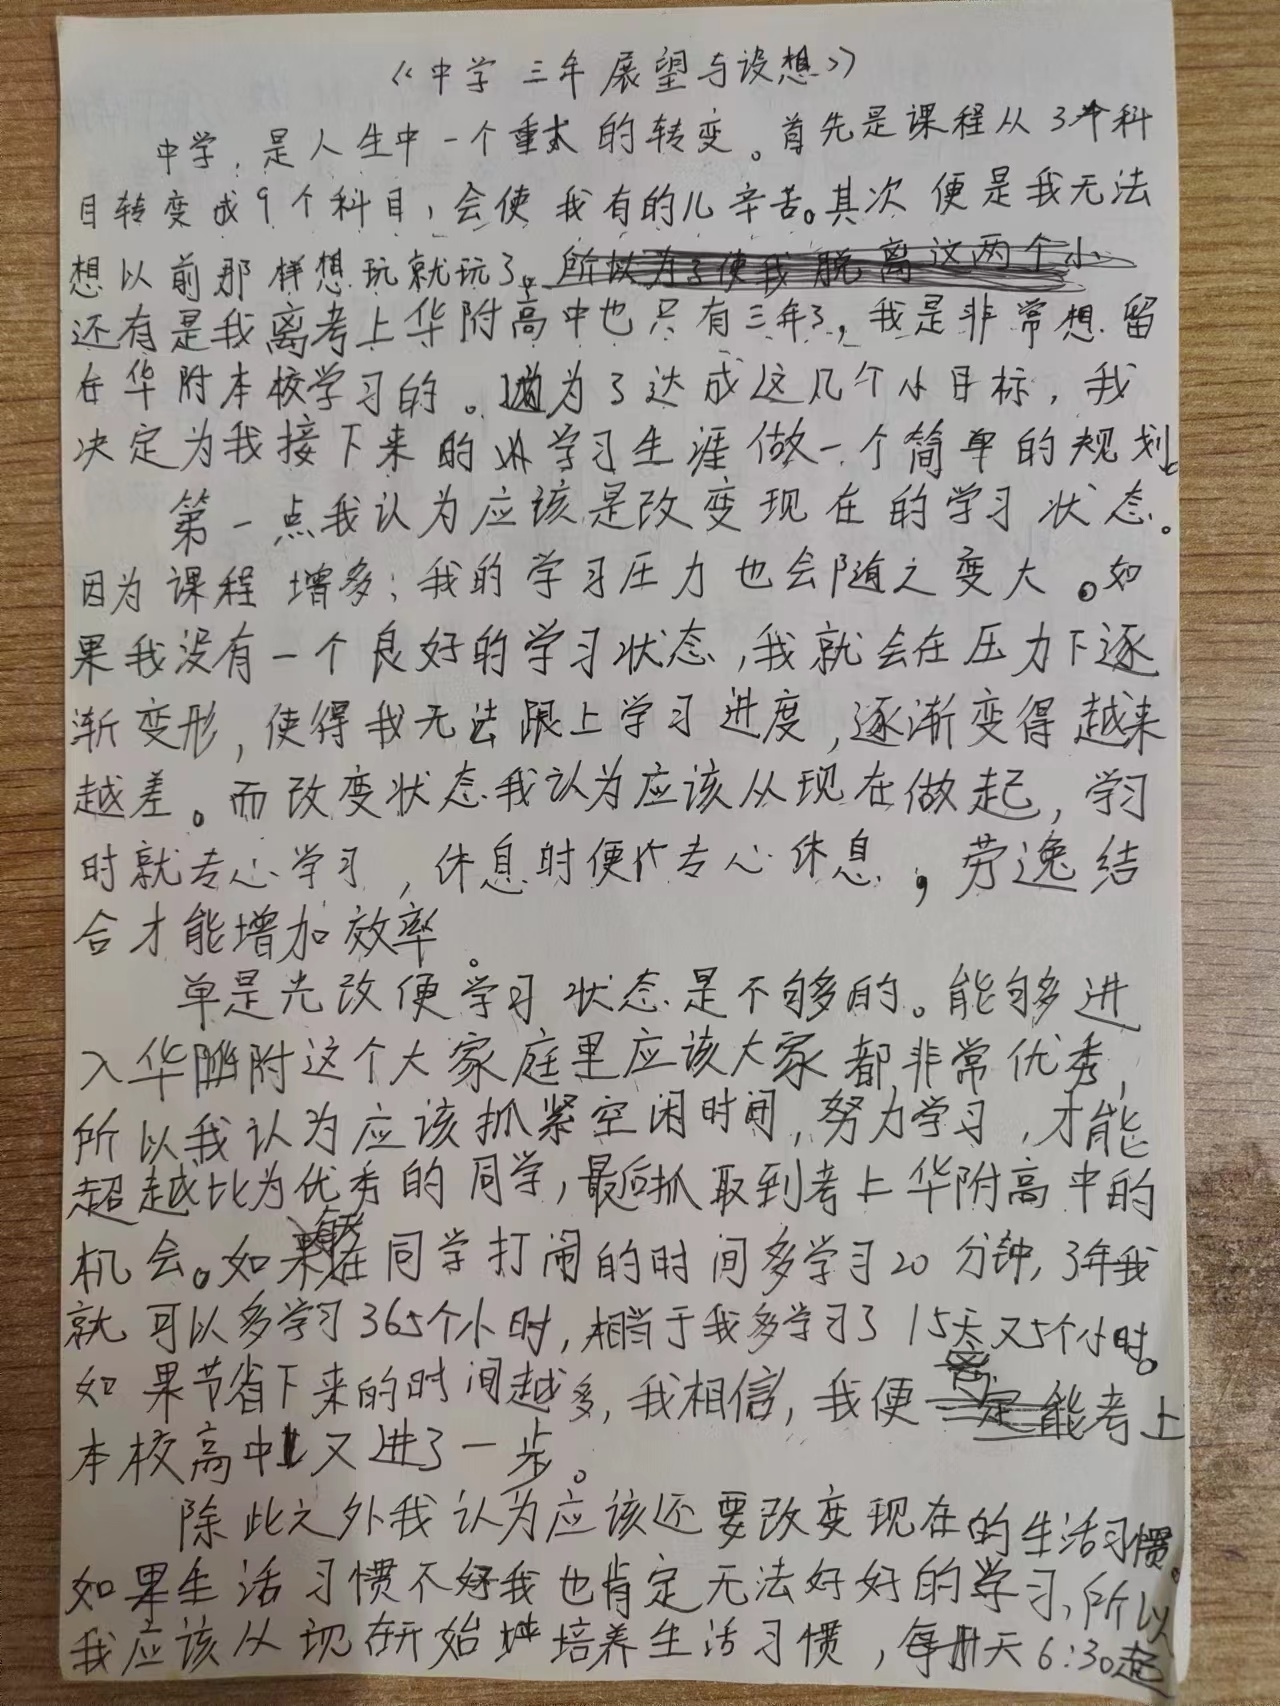 《中学三年展望与设想》
中学，是人生中一个重大的转变。首先是课程从3个科
目转变成9个科目，会使我有的儿辛苦。其次便是我无法
想以前那样想玩就玩了。所以为了使我脱离这两个小
还有是我离考上华附高中也只有三年了，我是非常想留
在华附本校学习的。为了达成这几个小目标，我
决定为我接下来的学习生涯做一个简单的规划。
第一点我认为应该是改变现在的学习状态。
因为课程增多；我的学习压力也会随之变大。如
果我没有一个良好的学习状态，我就会在压力下逐
渐变形，使得我无法跟上学习进度，逐渐变得越来
越差。而改变状态我认为应该从现在做起，学习
时就专心学习，休息时便专心休息，劳逸结
合才能增加效率。
单是光改便学习状态是不够的。能够进
入华附这个大家庭里应该大家都非常优秀，
所以我认为应该抓紧空闲时间，努力学习，才能
超越比为优秀的同学，最后抓取到考上华附高中的
机会。如果在同学打闹的时间多学习20分钟，3年我
就可以多学习365个小时，相当于我多学习了15天又5个小时。
如果节省下来的时间越多，我相信，我便离能考上
本校高中又进了一步。
除此之外我认为应该还要改变现在的生活习惯。
如果生活习惯不好我也肯定无法好好的学习，所以
我应该从现在开始培养生活习惯，每天6:30起